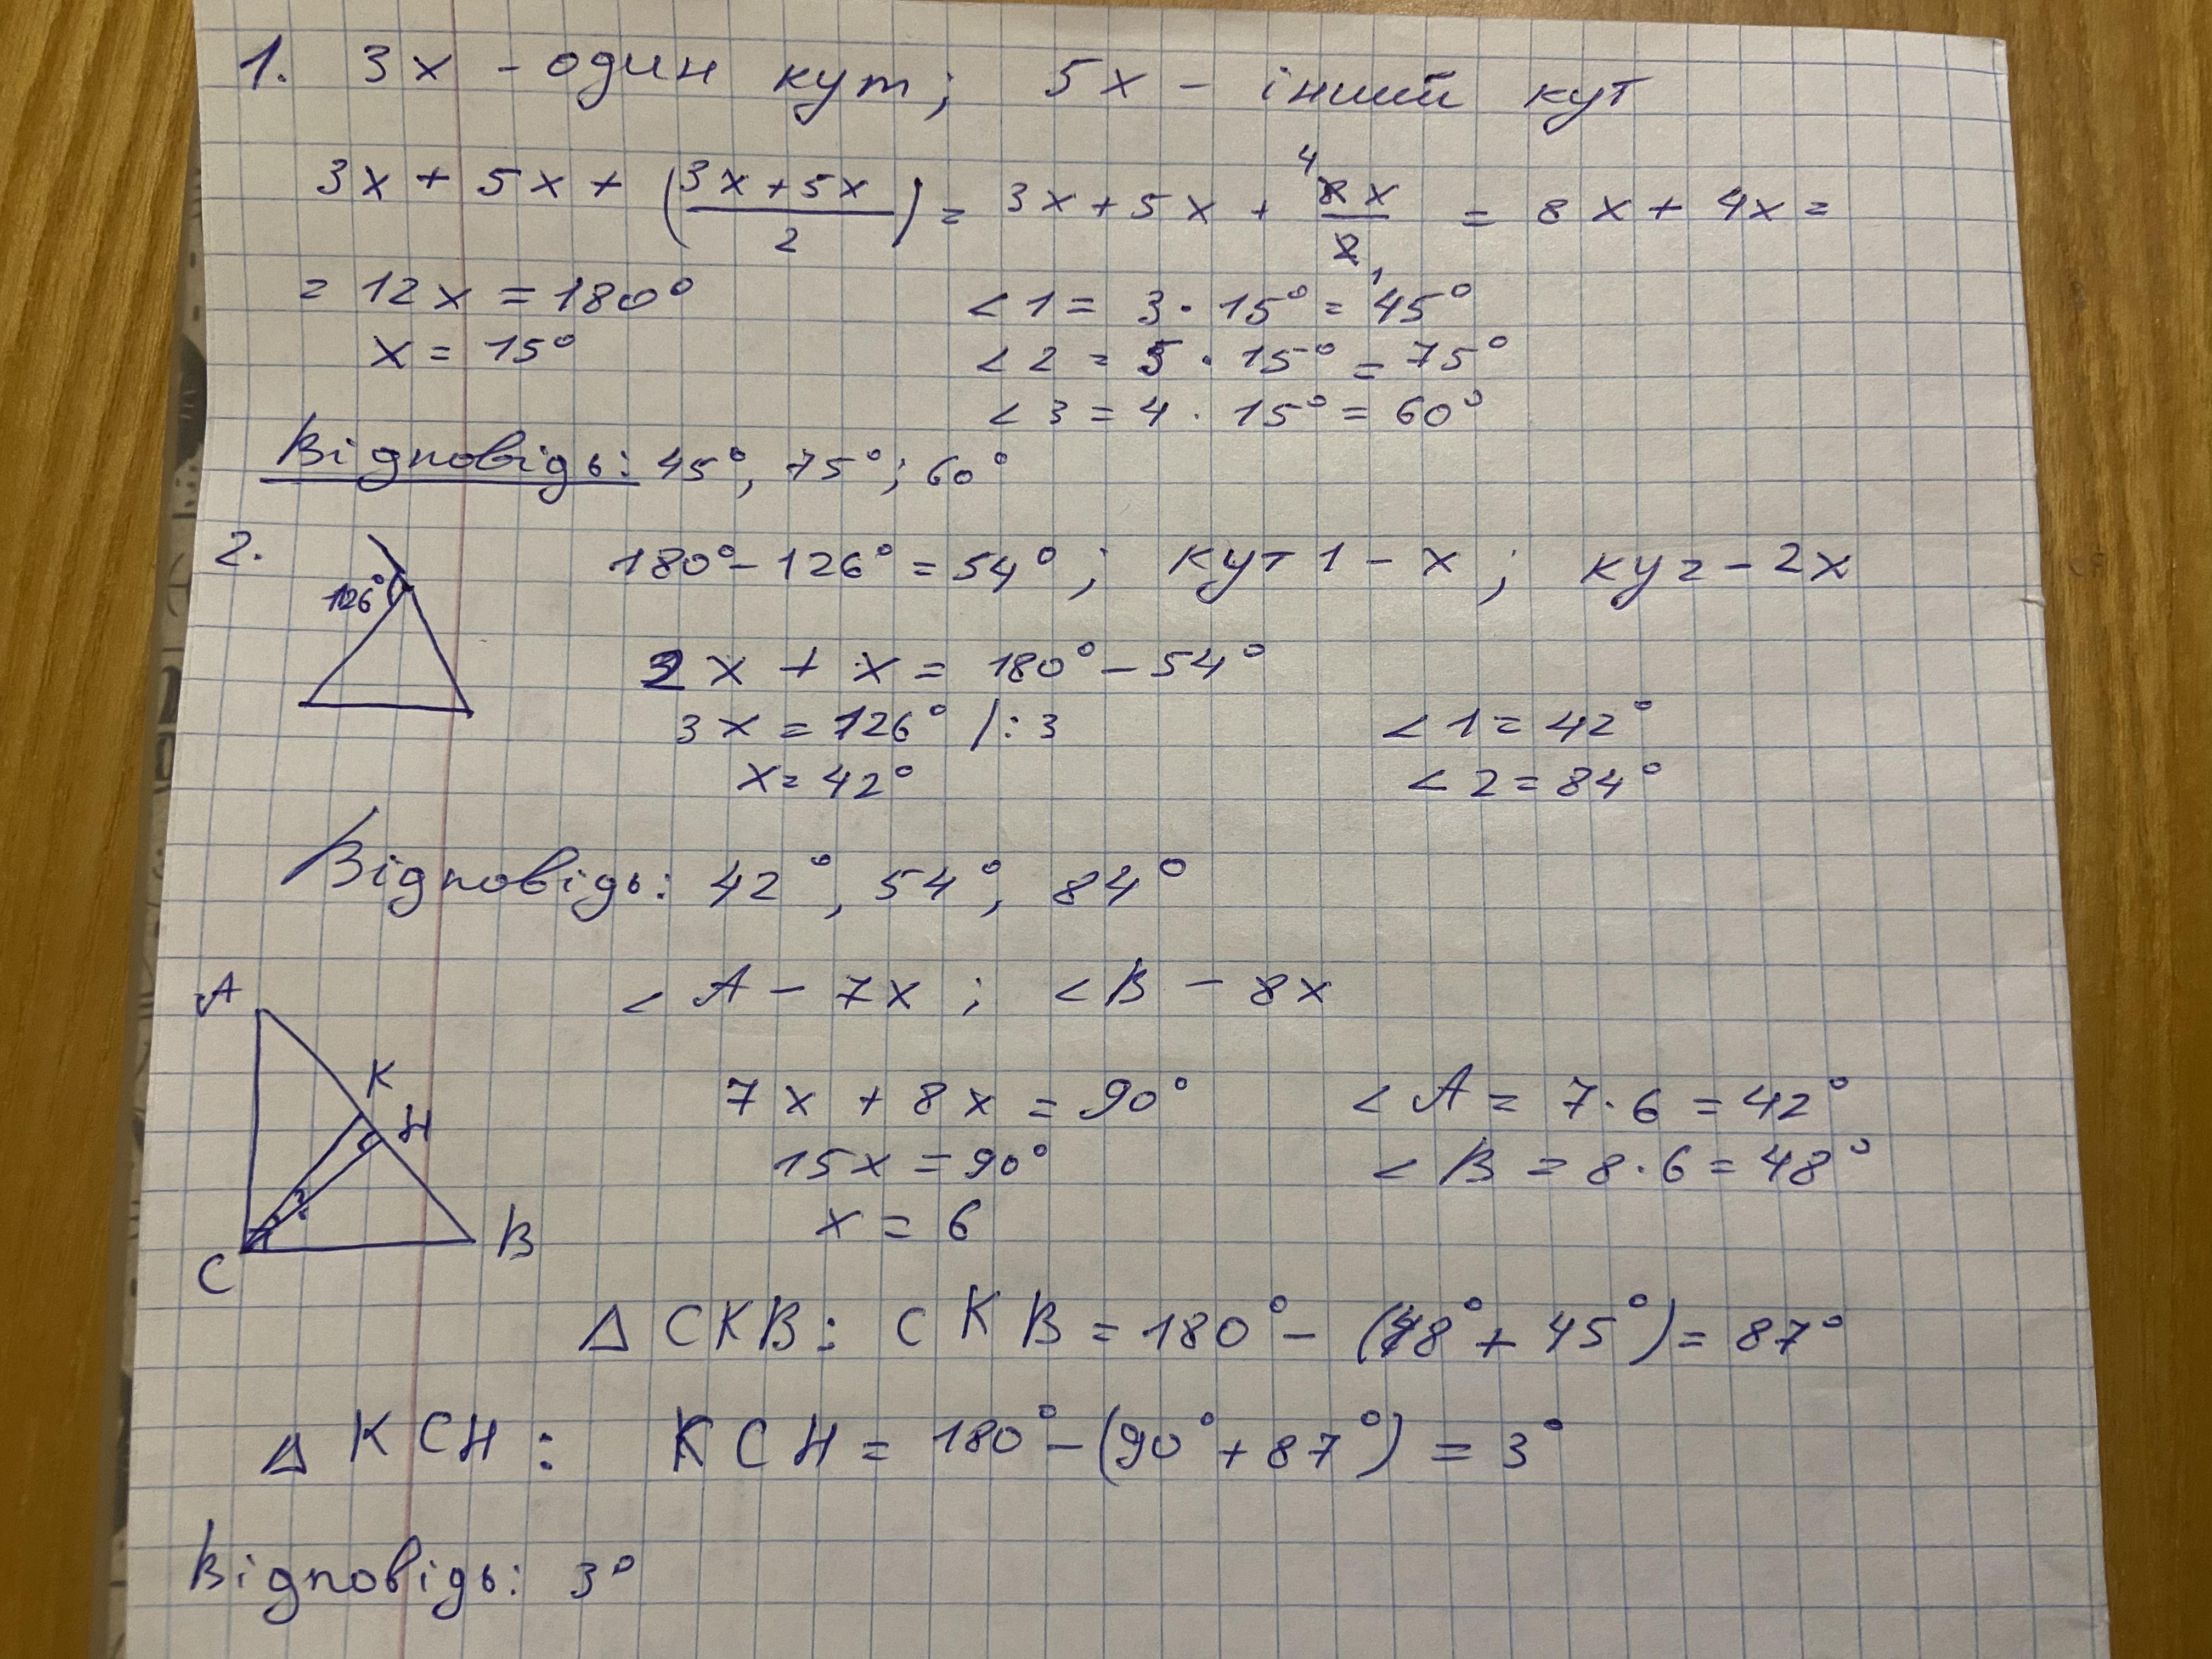 1. 3x - один кут; 5x - інший кут
3x + 5x + (3x+5x/2) = 3x+5x + 8x/2 = 8x + 4x =
4
1
= 12x = 180°
x = 15°
<1 = 3 · 15° = 45°
<2 = 5 · 15° = 75°
<3 = 4 · 15° = 60°
Відповідь: 45°, 75°; 60°
2.
126°
180° - 126° = 54°; кут 1 - x; ку 2 - 2x
2x + x = 180° - 54°
3x = 126° /: 3
x = 42°
<1 = 42°
<2 = 84°
Відповідь: 42°, 54°, 84°
A
K
H
?
C
B
<A - 7x; <B - 8x
7x + 8x = 90°
15x = 90°
x = 6
<A = 7·6 = 42°
<B = 8·6 = 48°
Δ CKB: CKB = 180° - (48° + 45°) = 87°
Δ KCH: KCH = 180° - (90° + 87°) = 3°
Відповідь: 3°